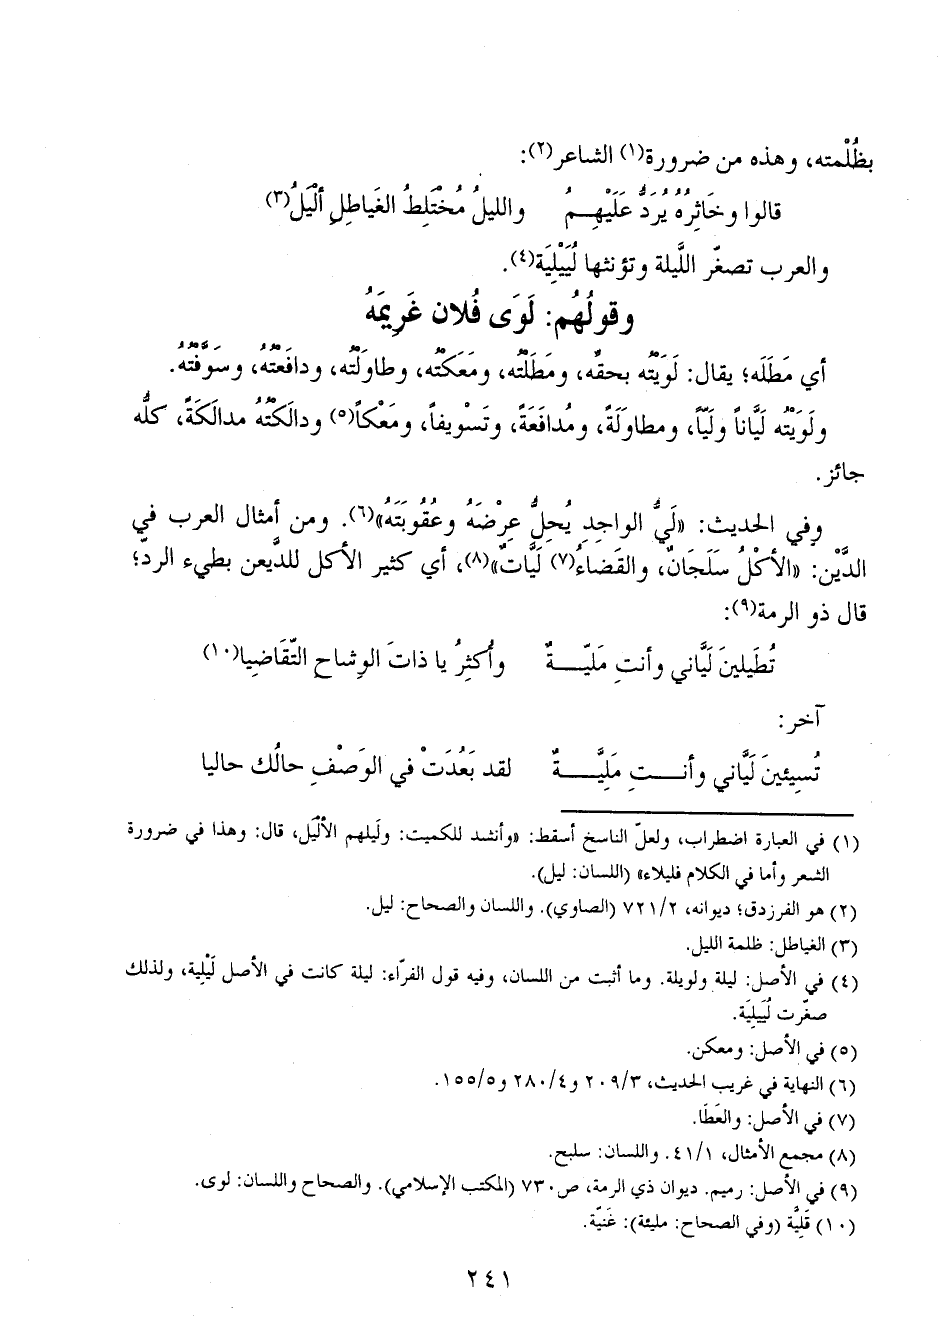 بظُلْمته، وهذه من ضرورة(١) الشاعر(٢):
قالوا وخَاثِرهُ يُرَدُّ عَلَيْهِمُ والليلُ مُخْتَلِطُ الغَياطِلِ ألْيَلُ(٣)
والعرب تصغّر اللَّيلة وتؤنثها لُيَيْلِيَة(٤).
وقولُهُم: لَوَى فُلان غَرِيمَهُ
أي مَطَلَه؛ يقال: لَوَيْتُه بحقه، ومَطَلْتُه، ومَعَكتُه، وطاوَلْتُه، ودافَعتُهُ، وسَوَّفْتُهُ.
ولَوَيْتُه لَيَّاناً ولَيّاً، ومطاوَلَةً، ومُدافَعَةً، وتَسْويفاً، ومَعْكاً(٥) ودالَكتُهُ مدالَكَةً، كلُّه
جائز.
وفي الحديث: «لَيُّ الواجِدِ يُحِلُّ عِرْضَهُ وعُقُوبَتَهُ»(٦). ومن أمثال العرب في
الدَّيْن: «الأكْلُ سَلَجَانٌ، والقَضاءُ(٧) لَيَّاتٌ»(٨)، أي كثير الأكل للدَّيعن بطيء الردّ؛
قال ذو الرمة(٩):
تُطَيلينَ لَيَّاني وأنتِ مَليّـــةٌ وأُكثِرُ يا ذاتَ الوِشاح التّقَاضِيا(١٠)
آخر:
تُسِيئينَ لَيَّاني وأنـــتِ مَلِيَّـــةٌ لقد بَعُدَتْ في الوَصْفِ حالُك حاليا
(١) في العبارة اضطراب، ولعلّ الناسخ أسقط: «وأنشد للكميت: ولَيلهم الأليَل، قال: وهذا في ضرورة
الشعر وأما في الكلام فليلاء» (اللسان: ليل).
(٢) هو الفرزدق؛ ديوانه، ٧٢١/٢ (الصاوي). واللسان والصحاح: ليل.
(٣) الغياطل: ظلمة الليل.
(٤) في الأصل: ليلة ولويلة. وما أثبت من اللسان، وفيه قول الفرّاء: ليلة كانت في الأصل لَيْلِية، ولذلك
صغّرت لُيَيلِيَة.
(٥) في الأصل: ومعكن.
(٦) النهاية في غريب الحديث، ٢٠٩/٣ و٢٨٠/٤ و١٥٥/٥.
(٧) في الأصل: والعَطَا.
(٨) مجمع الأمثال، ٤١/١. واللسان: سلبح.
(٩) في الأصل: رميم. ديوان ذي الرمة، ص٧٣٠ (المكتب الإسلامي). والصحاح واللسان: لوى.
(١٠) قَلِيَّة (وفي الصحاح: مليئة): غَنيّة.
٢٤١